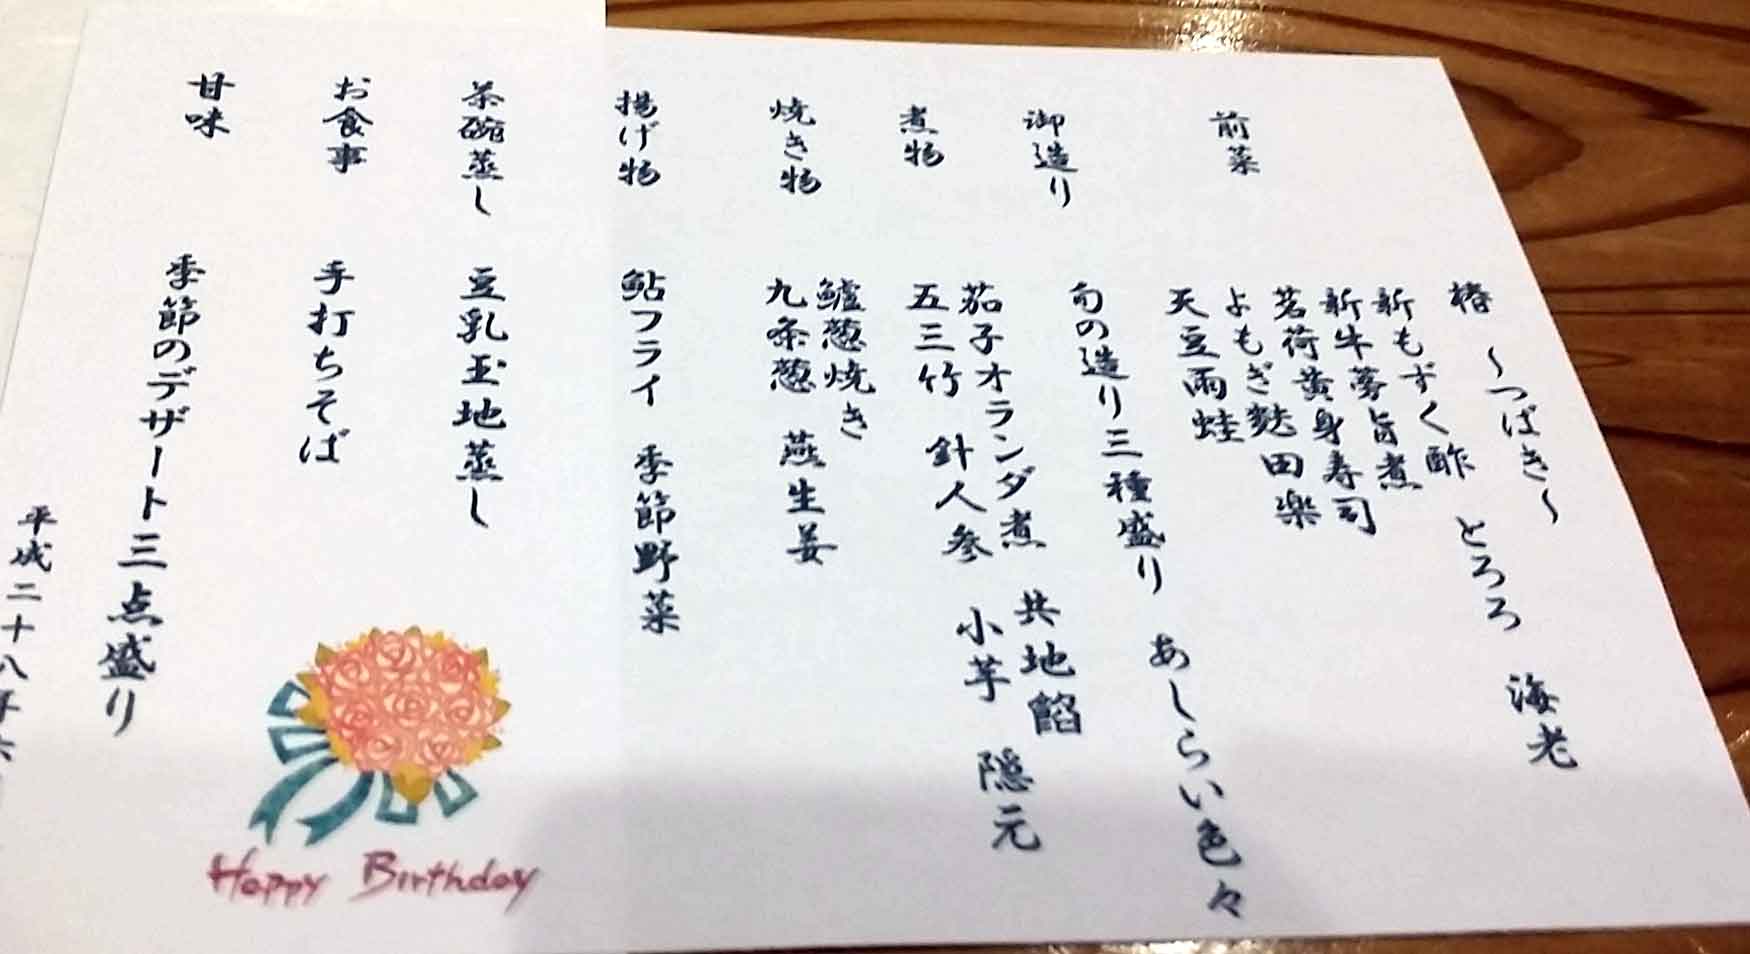 椿 ～つばき～
前菜 新もずく酢 とろろ 海老
新牛蒡旨煮
茗荷黄身寿司
よもぎ麩田楽
天豆雨蛙
御造り 旬の造り三種盛り あしらい色々
煮物 茄子オランダ煮 共地餡
五三竹 針人参 小芋 隠元
焼き物 鱸葱焼き
九条葱 燕生姜
揚げ物 鮎フライ 季節野菜
茶碗蒸し 豆乳玉地蒸し
お食事 手打ちそば
甘味 季節のデザート三点盛り
平成二十八年六
Happy Birthday